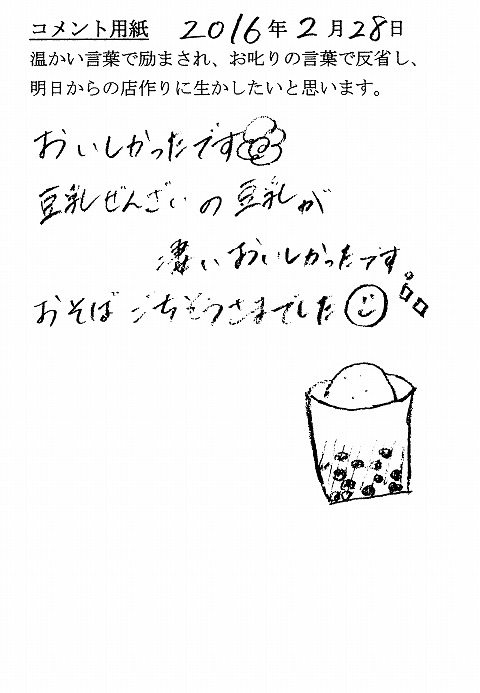 コメント用紙 2016年2月28日
温かい言葉で励まされ、お叱りの言葉で反省し、
明日からの店作りに生かしたいと思います。
おいしかったです
豆乳ぜんざいの豆乳が
凄いおいしかったです。
おそばごちそうさまでした